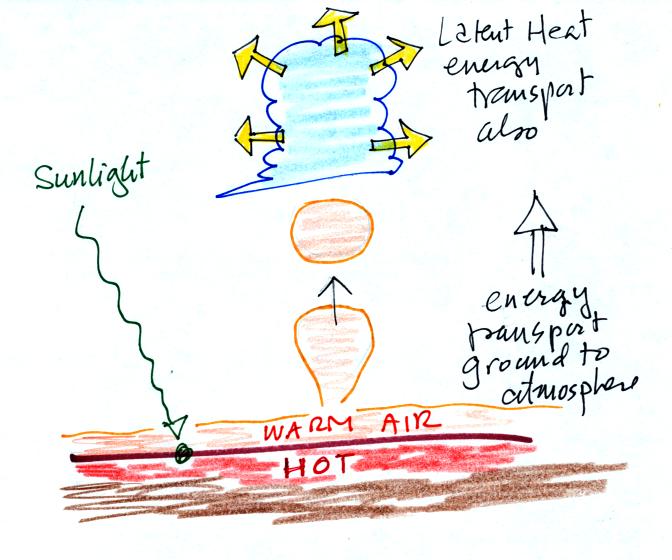 Latent Heat
energy
transport
also
Sunlight
energy
transport
ground to
atmosphere
WARM AIR
HOT